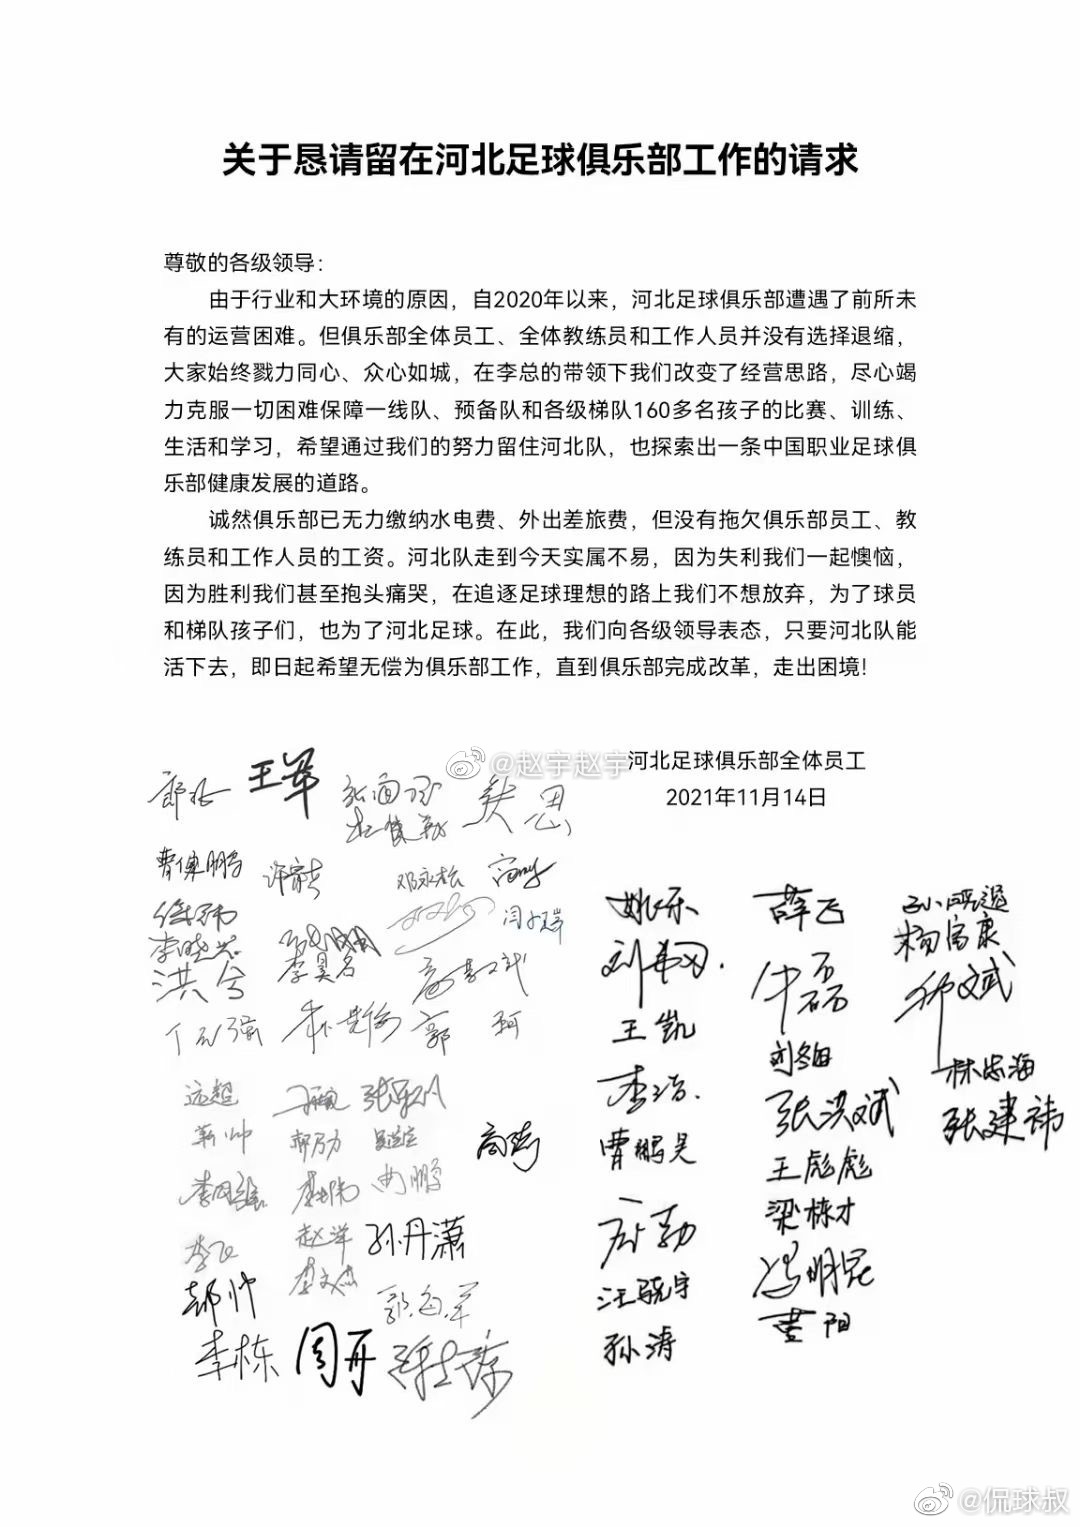 关于恳请留在河北足球俱乐部工作的请求
尊敬的各级领导：
由于行业和大环境的原因，自2020年以来，河北足球俱乐部遭遇了前所未
有的运营困难。但俱乐部全体员工、全体教练员和工作人员并没有选择退缩，
大家始终戮力同心、众心如城，在李总的带领下我们改变了经营思路，尽心竭
力克服一切困难保障一线队、预备队和各级梯队160多名孩子的比赛、训练、
生活和学习，希望通过我们的努力留住河北队，也探索出一条中国职业足球俱
乐部健康发展的道路。
诚然俱乐部已无力缴纳水电费、外出差旅费，但没有拖欠俱乐部员工、教
练员和工作人员的工资。河北队走到今天实属不易，因为失利我们一起懊恼，
因为胜利我们甚至抱头痛哭，在追逐足球理想的路上我们不想放弃，为了球员
和梯队孩子们，也为了河北足球。在此，我们向各级领导表态，只要河北队能
活下去，即日起希望无偿为俱乐部工作，直到俱乐部完成改革，走出困境!
@赵宇赵宇
河北足球俱乐部全体员工
2021年11月14日
王军
曹健鹏
邓永松
李晓芸
洪兮
李昊名
郭珂
远超
靳帅
曲鹏
李飞
赵洋
孙丹潇
郝帅
李文杰
李栋
周舟
姚乐
薛飞
杨富康
牛磊
王凯
刘冬田
林忠海
李浩
张洪斌
张建祎
曹鹏昊
王彪彪
梁栋才
冯明冠
汪晓宇
董阳
孙涛
@侃球叔